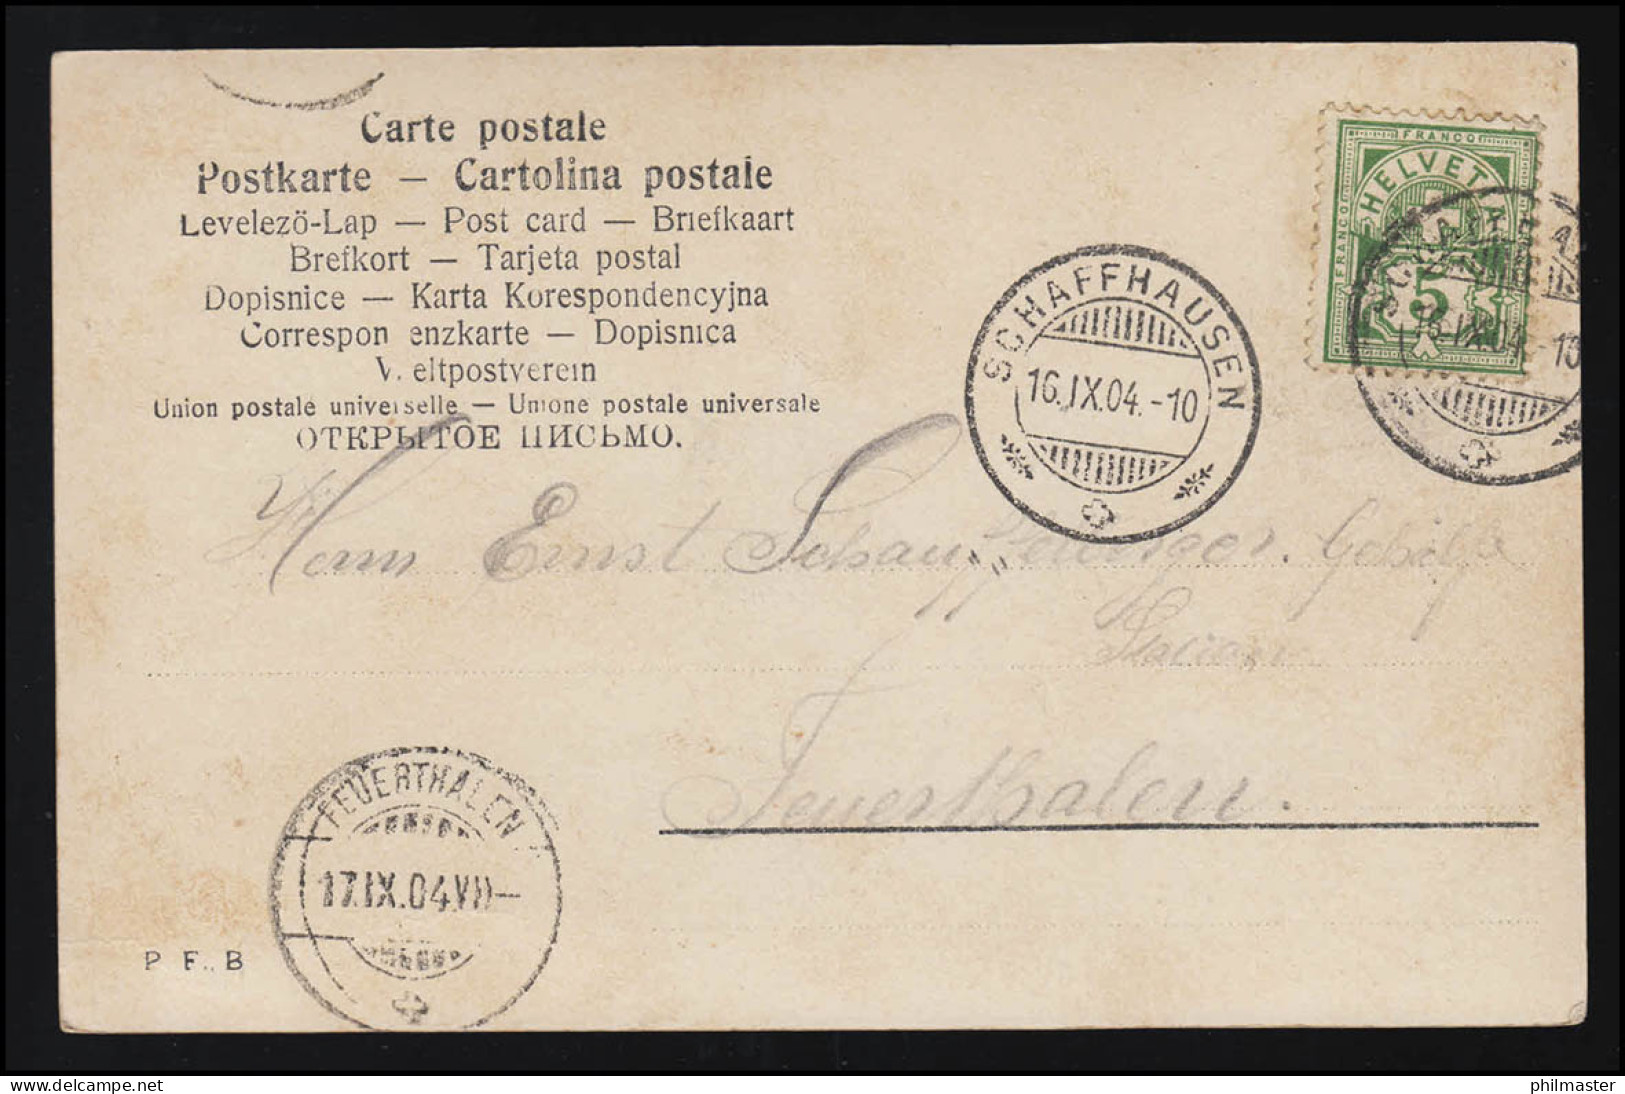 Carte postale
Postkarte — Cartolina postale
Levelezö-Lap — Post card — Briefkaart
Brefkort — Tarjeta postal
Dopisnice — Karta Korespondencyjna
Correspon enzkarte — Dopisnica
W eltpostverein
Union postale universelle — Unione postale universale
ОТКРЫТОЕ ПИСЬМО.
FRANCO
FRANCO
HELVETIA
5
SCHAFFHAUSEN
16.IX.04.-10
SCHAFFHAUSEN
16.IX.04.-10
Herrn Ernst
Feuerthalen.
FEUERTHALEN
17.IX.04.VII—
P. F. B
philmaster